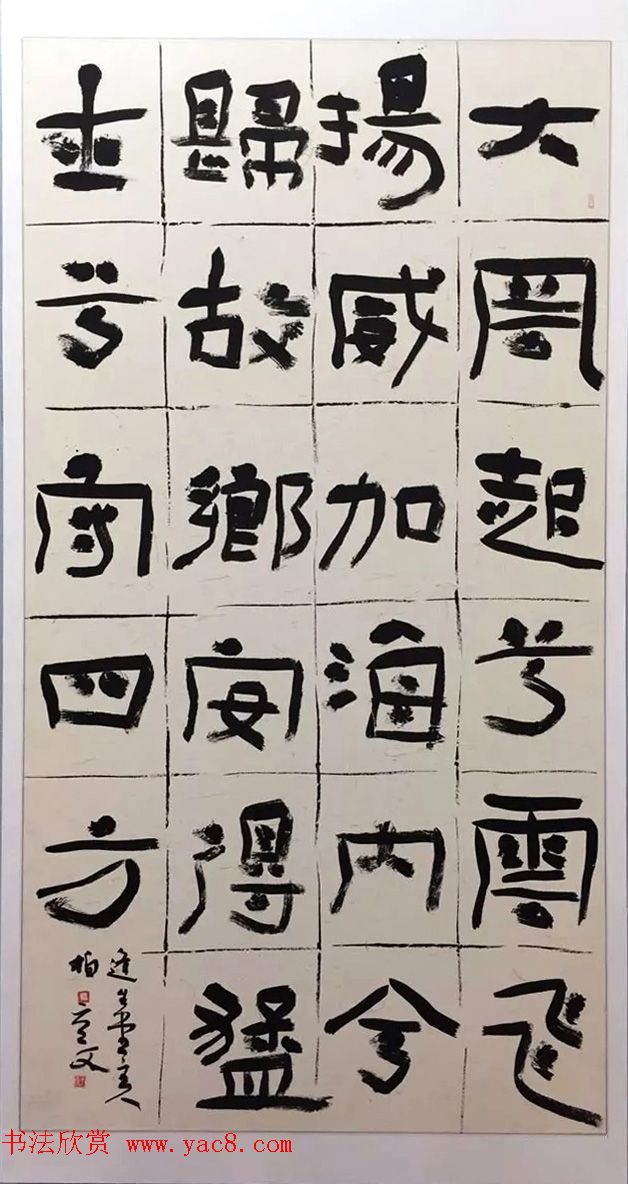 大風起兮雲飛
揚威加海内兮
歸故鄉安得猛
士兮守四方
书法欣赏 www.yac8.com